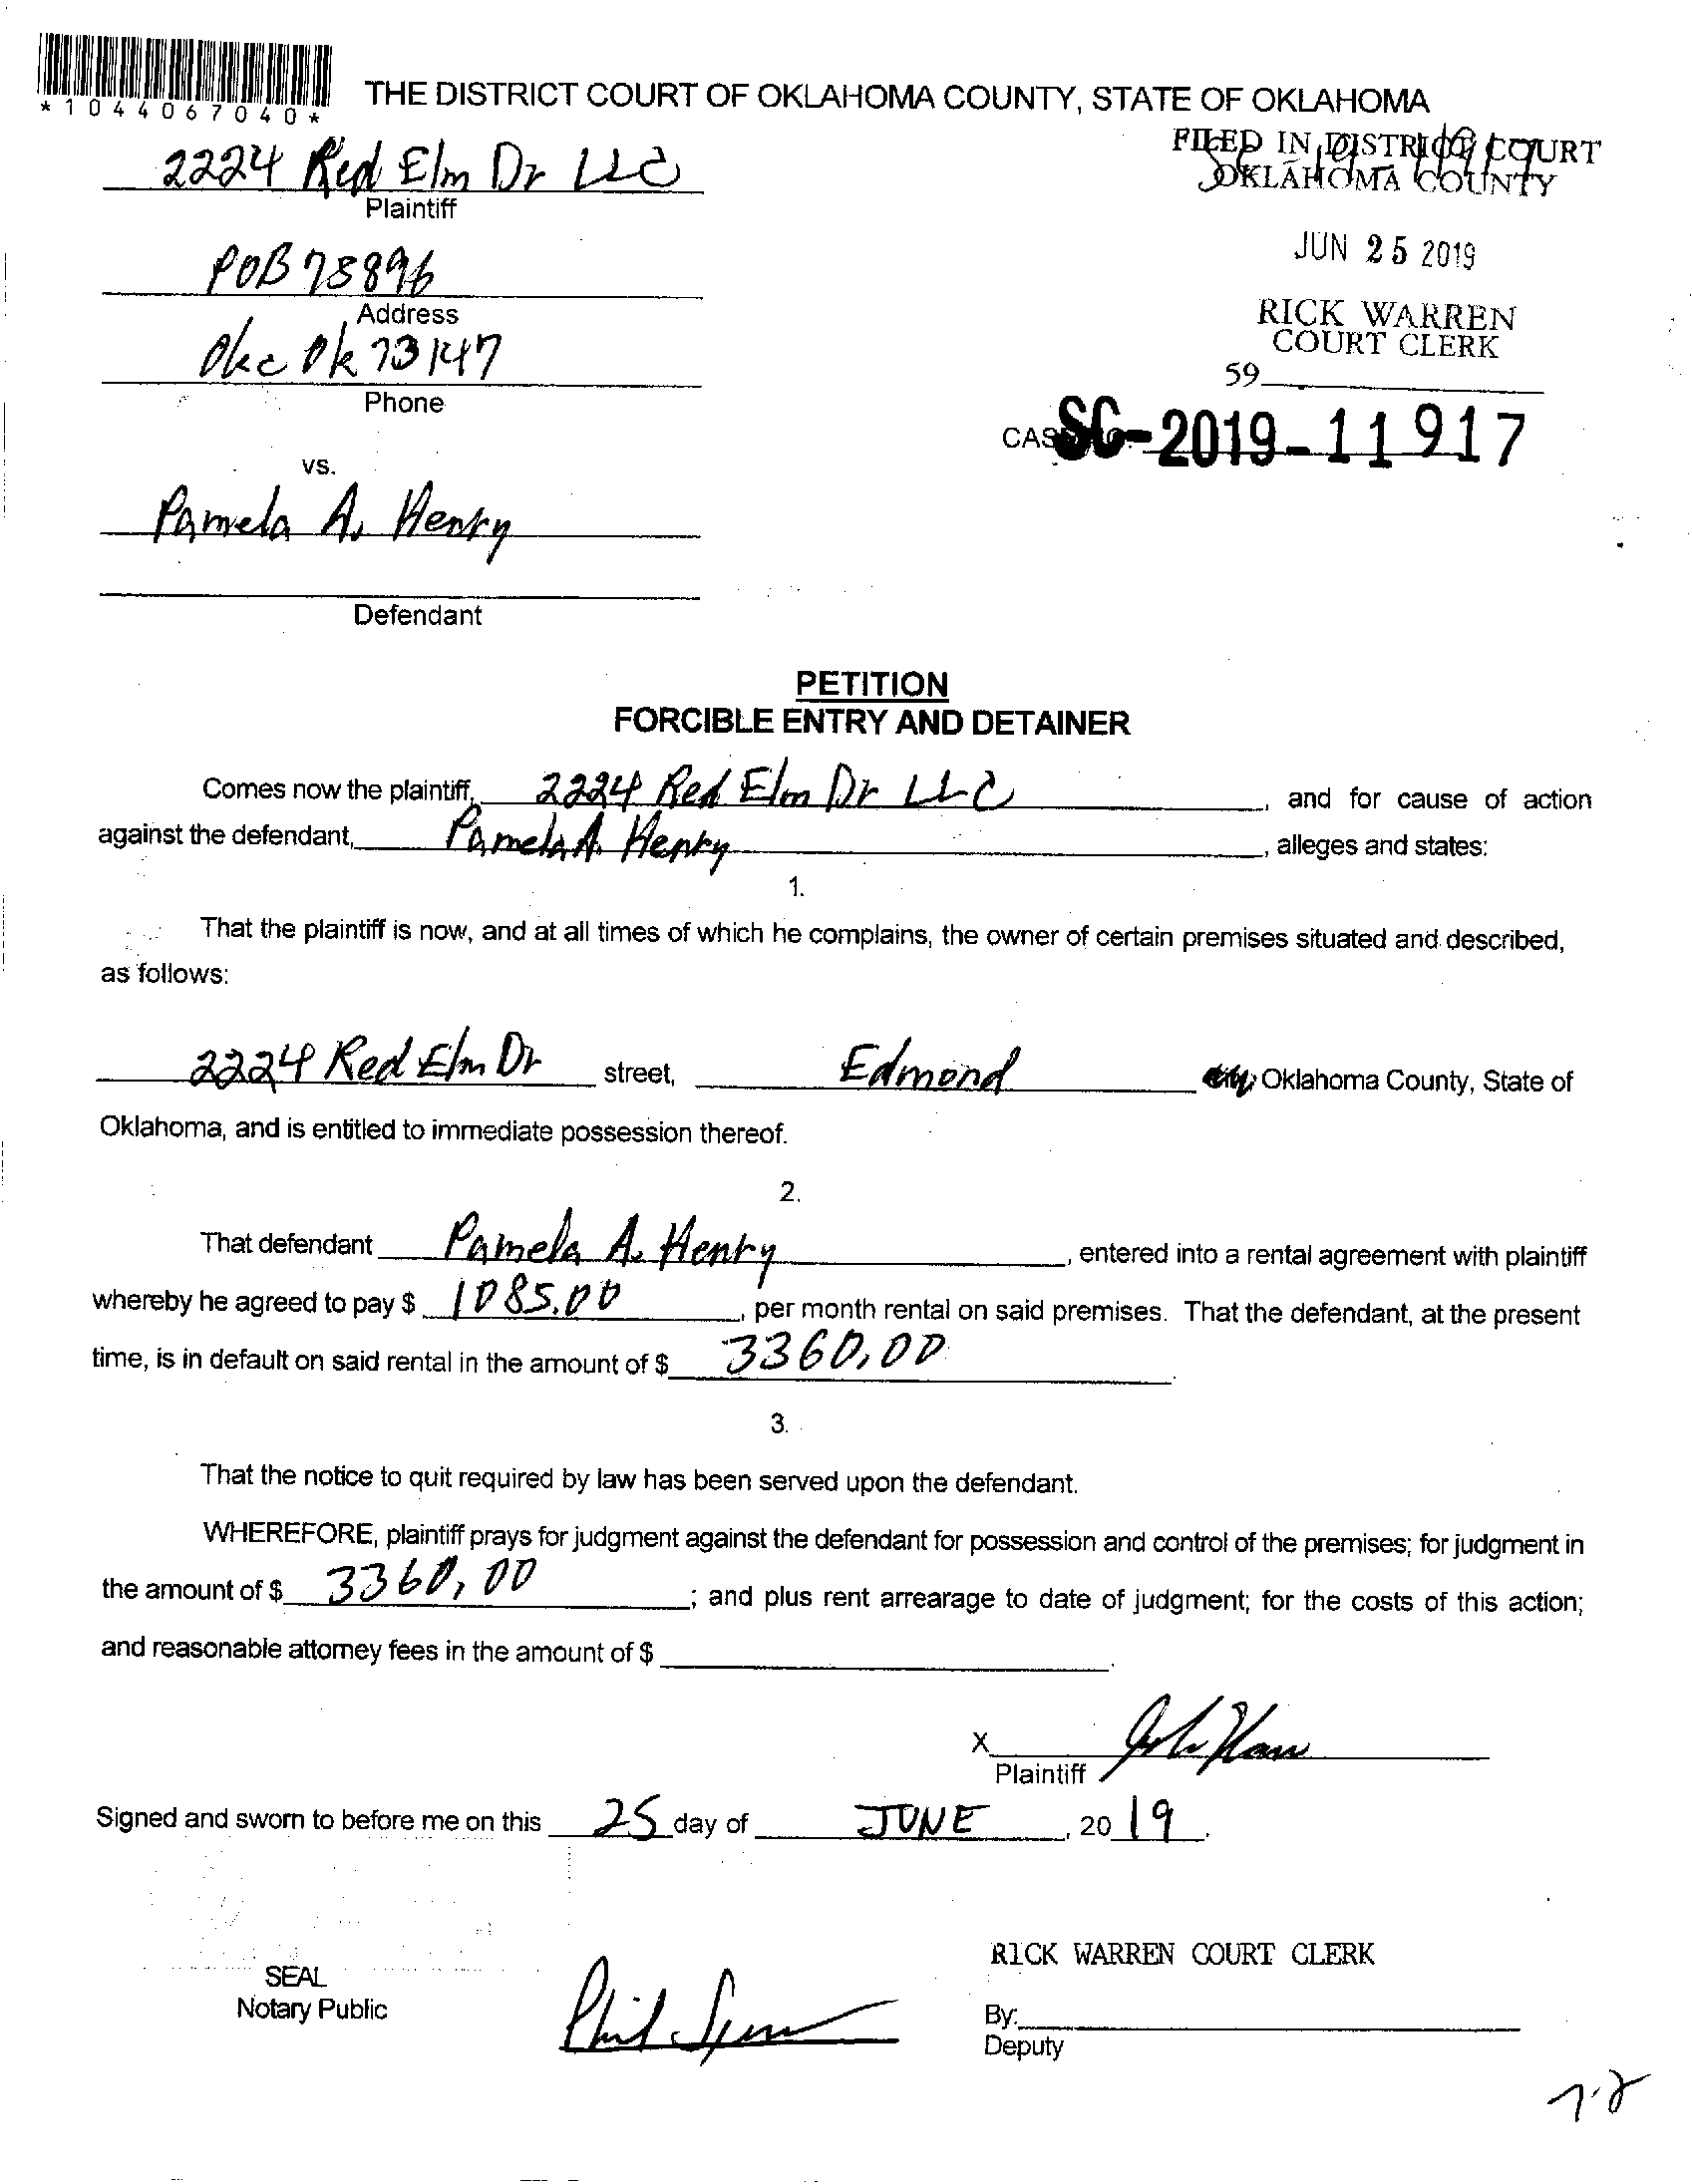 *1044067040*
THE DISTRICT COURT OF OKLAHOMA COUNTY, STATE OF OKLAHOMA
FILED IN DISTRICT COURT
OKLAHOMA COUNTY
2224 Red Elm Dr LLC
Plaintiff
JUN 25 2019
POB 75896
Address
RICK WARREN
COURT CLERK
Okc Ok 73147
59
Phone
SC-2019-11917
vs.
Pamela A. Henry
Defendant
PETITION
FORCIBLE ENTRY AND DETAINER
Comes now the plaintiff, 2224 Red Elm Dr LLC, and for cause of action
against the defendant, Pamela A. Henry, alleges and states:
1.
That the plaintiff is now, and at all times of which he complains, the owner of certain premises situated and described,
as follows:
2224 Red Elm Dr street, Edmond Oklahoma County, State of
Oklahoma, and is entitled to immediate possession thereof.
2.
That defendant Pamela A. Henry, entered into a rental agreement with plaintiff
whereby he agreed to pay $ 1085.00, per month rental on said premises. That the defendant, at the present
time, is in default on said rental in the amount of $ 3360.00.
3.
That the notice to quit required by law has been served upon the defendant.
WHEREFORE, plaintiff prays for judgment against the defendant for possession and control of the premises; for judgment in
the amount of $ 3360.00; and plus rent arrearage to date of judgment; for the costs of this action;
and reasonable attorney fees in the amount of $ .
X
Plaintiff
Signed and sworn to before me on this 25 day of JUNE, 2019.
RICK WARREN COURT CLERK
SEAL
Notary Public
By:
Deputy